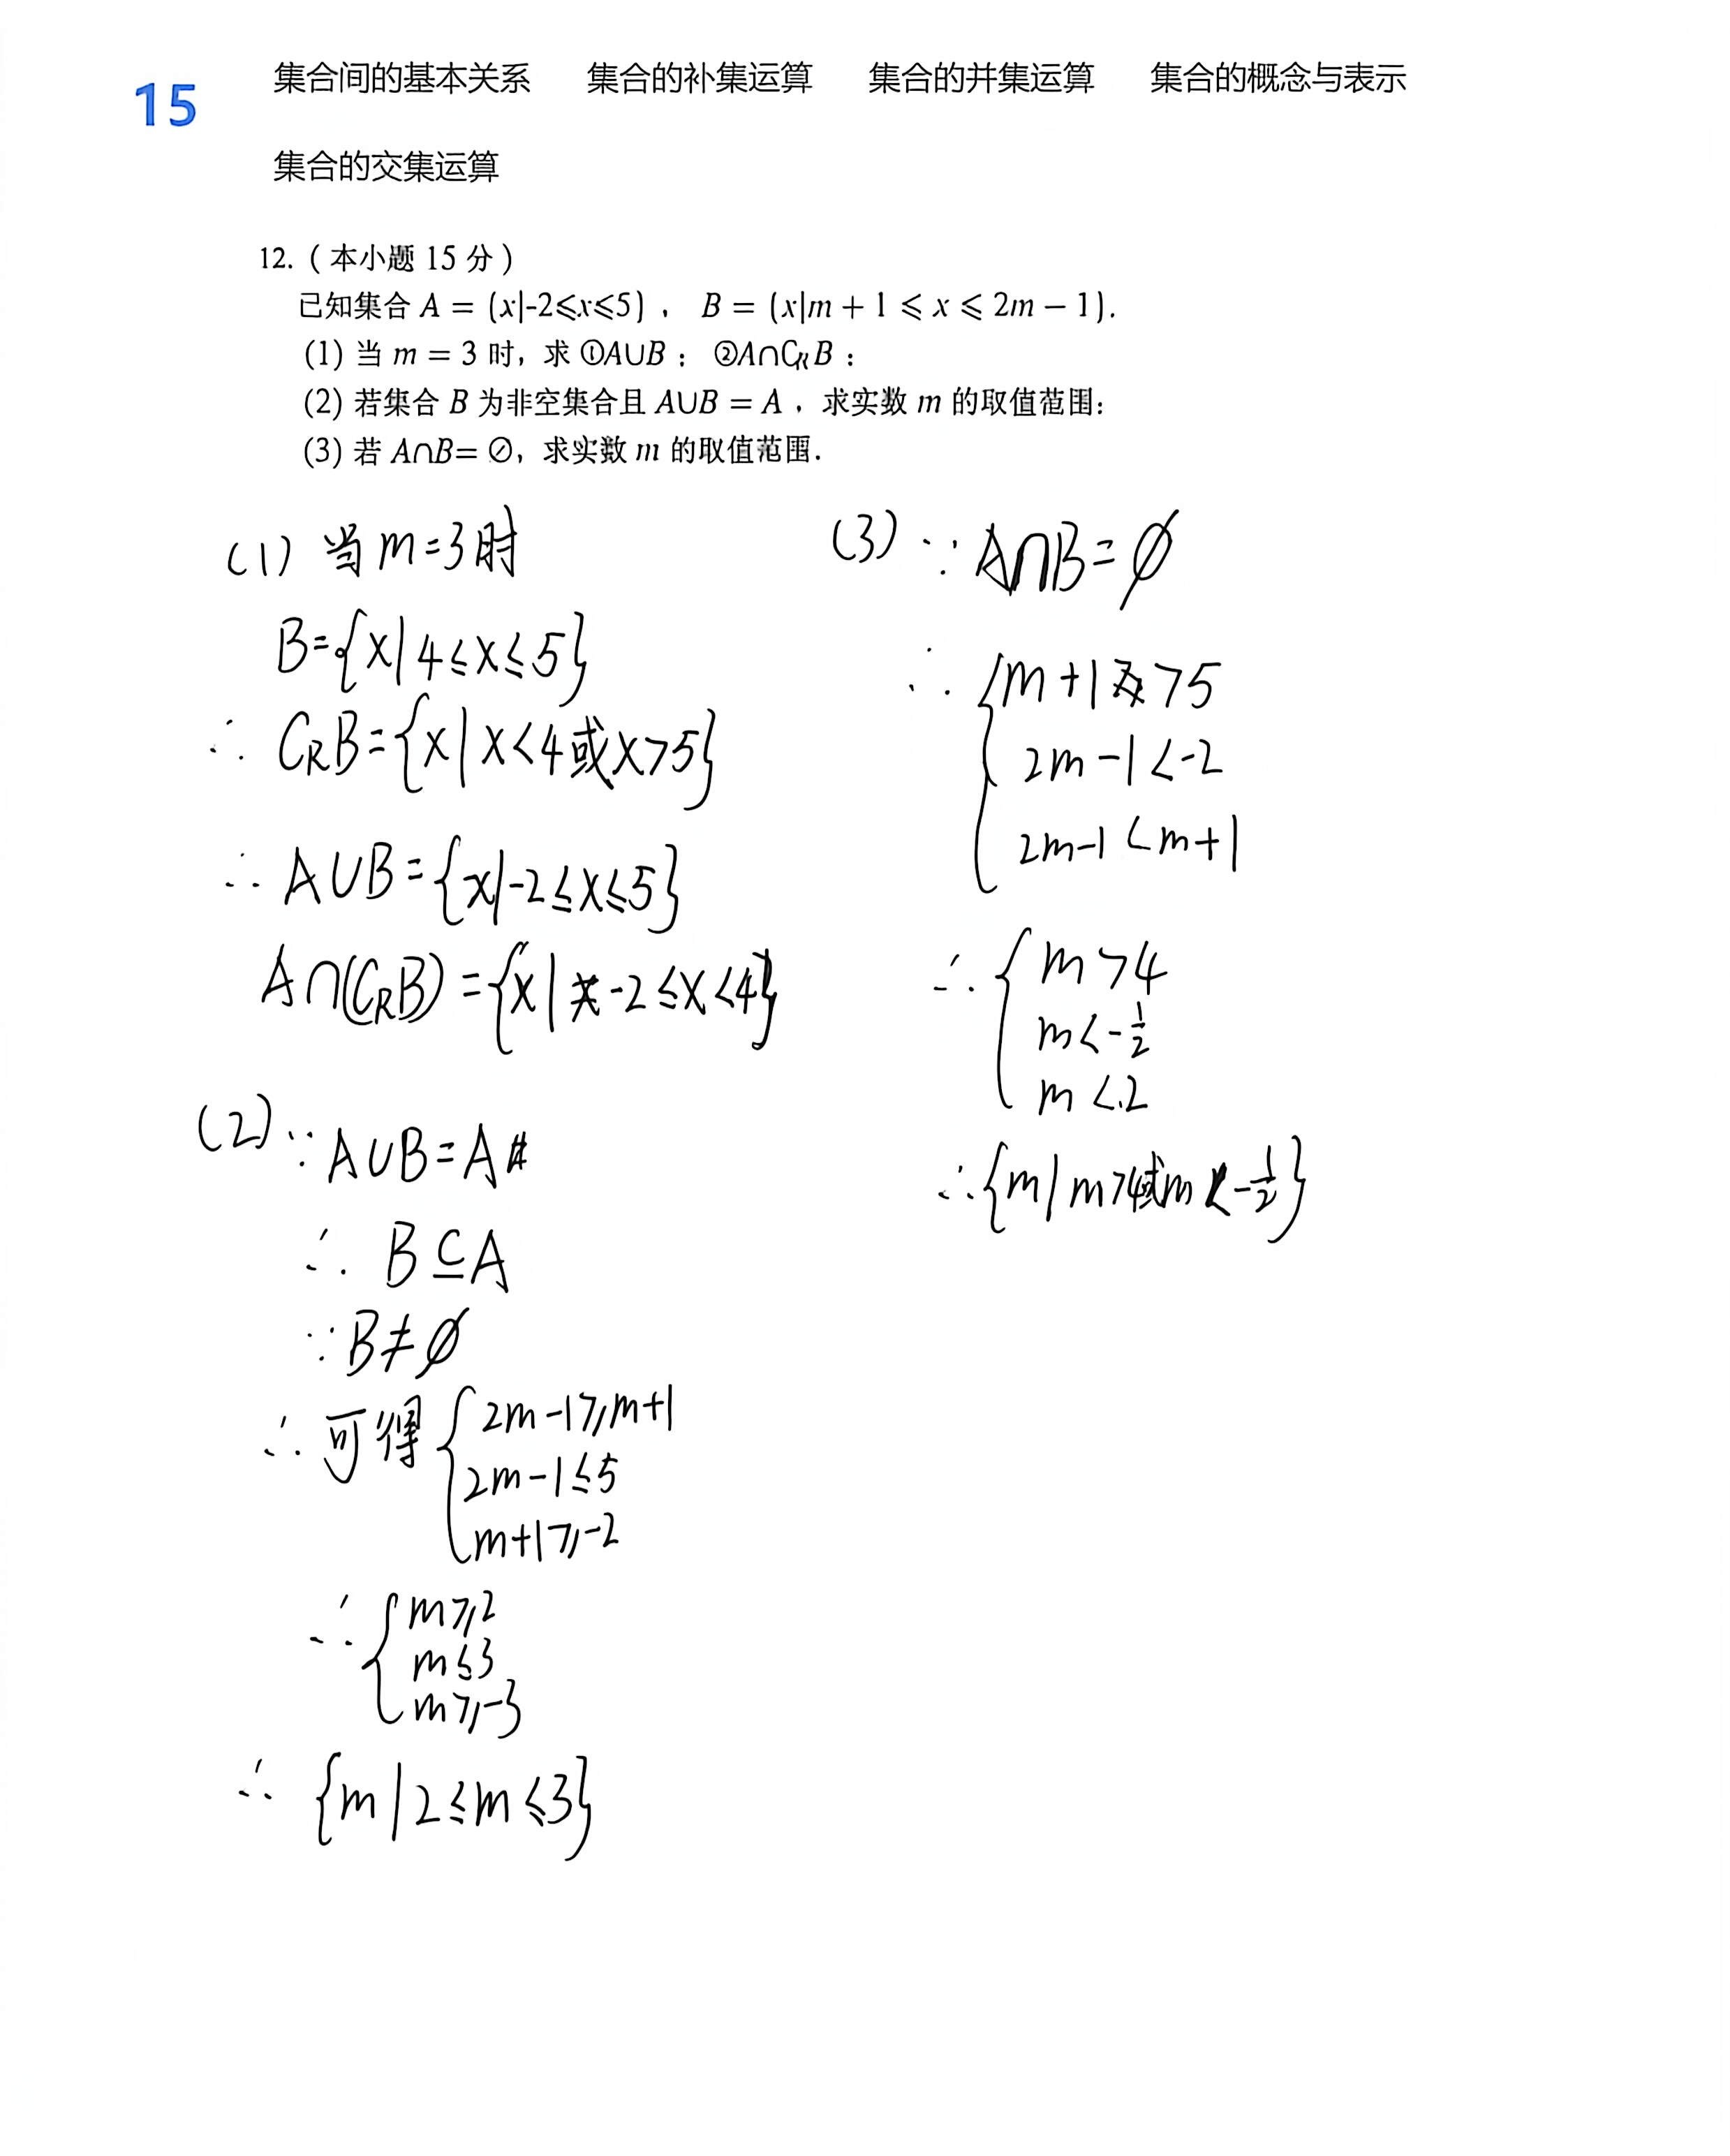 15
集合间的基本关系 集合的补集运算 集合的并集运算 集合的概念与表示
集合的交集运算
12.(本小题 15 分)
已知集合 A = {x|-2⩽x⩽5}, B = {x|m + 1 ⩽ x ⩽ 2m − 1}.
(1) 当 m = 3 时, 求 ①A∪B; ②A∩∁RB;
(2) 若集合 B 为非空集合且 A∪B = A, 求实数 m 的取值范围;
(3) 若 A∩B= ∅, 求实数 m 的取值范围.
(1) 当 m=3时
B={x|4≤x≤5}
∴ CRB={x|x<4或x>5}
∴ A∪B={x|-2≤x≤5}
A∩(CRB)={x|-2≤x<4}
(2) ∵ A∪B=A
∴ B⊆A
∵ B≠∅
∴ 可得 { 2m-1≥m+1
2m-1≤5
m+1≥-2
∴ { m≥2
m≤3
m≥-3
∴ {m|2≤m≤3}
(3) ∵ A∩B=∅
∴ { m+1>5
2m-1<-2
2m-1<m+1
∴ { m>4
m<-1/2
m<2
∴ {m|m>4或m<-1/2}